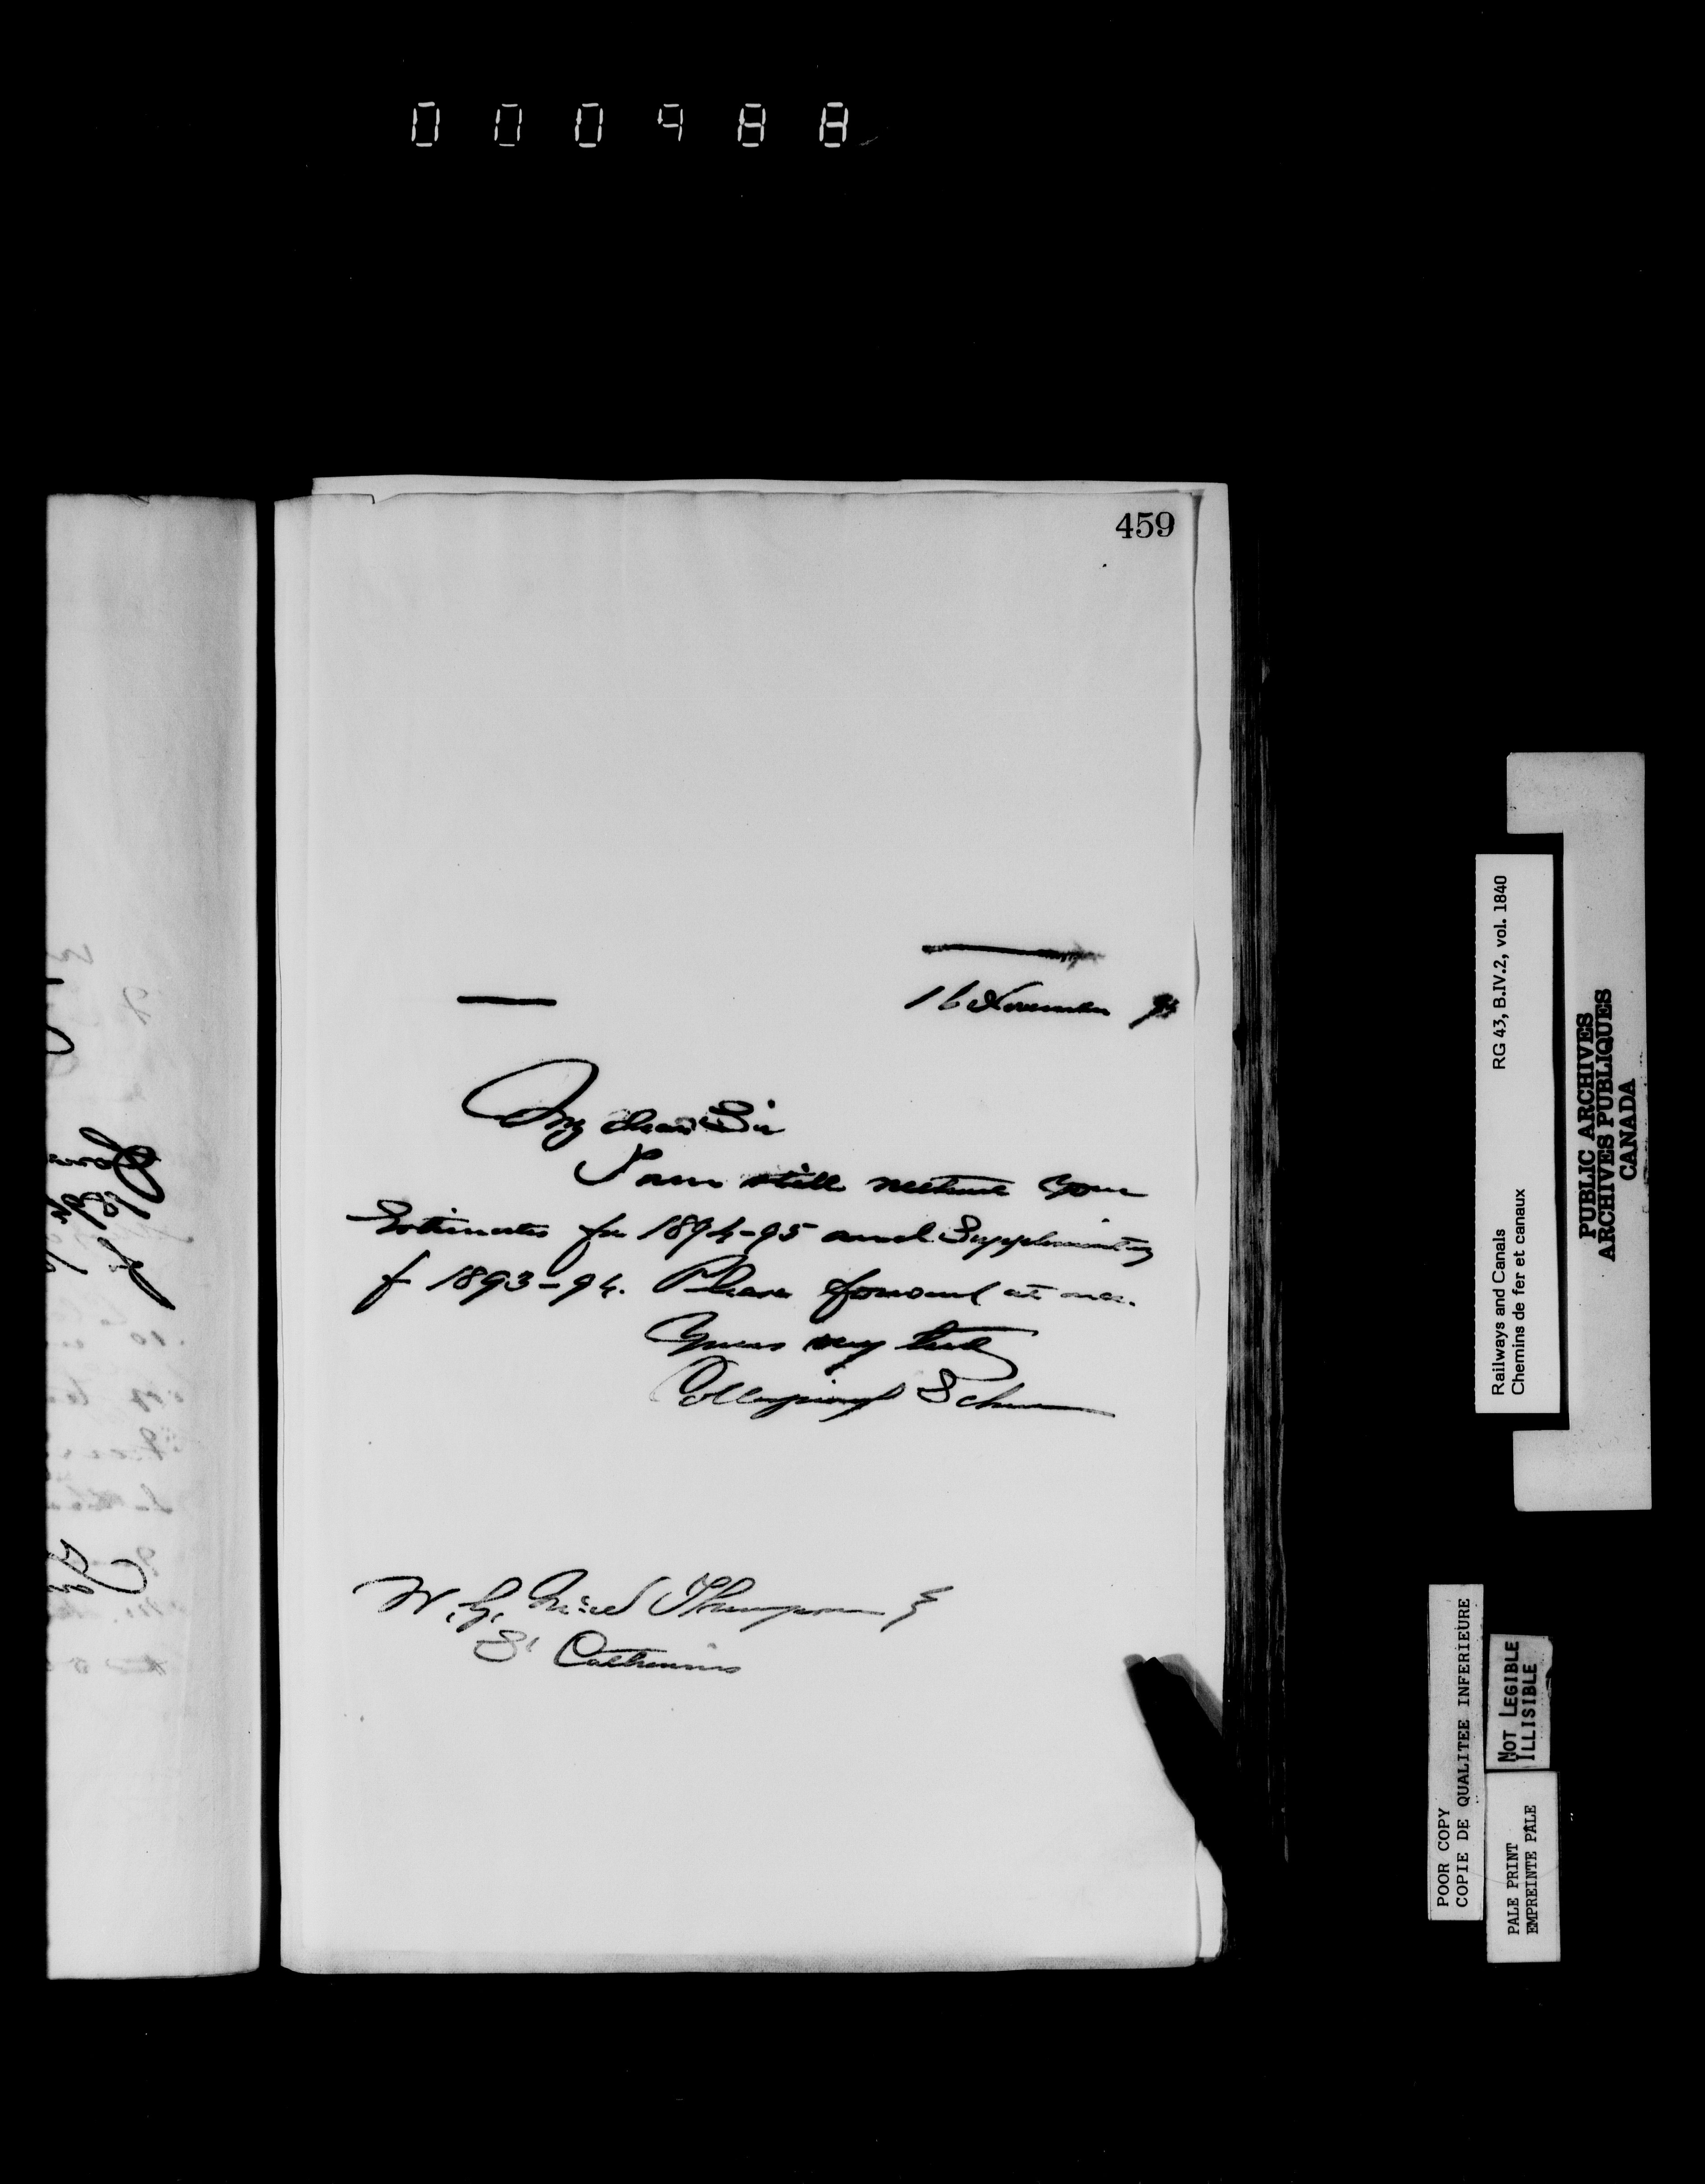 000988
459
16 November 93
My dear Sir
I am still without your
Estimates for 1894-95 and Supplementary
f 1893-94. Please forward at once.
Yours very truly
Collingwood Schreiber
W. G. Thompson
St Catherines
RG 43, B.IV.2, vol. 1840
Railways and Canals
Chemins de fer et canaux
PUBLIC ARCHIVES
ARCHIVES PUBLIQUES
CANADA
POOR COPY
COPIE DE QUALITEE INFERIEURE
NOT LEGIBLE
ILLISIBLE
PALE PRINT
EMPREINTE PALE